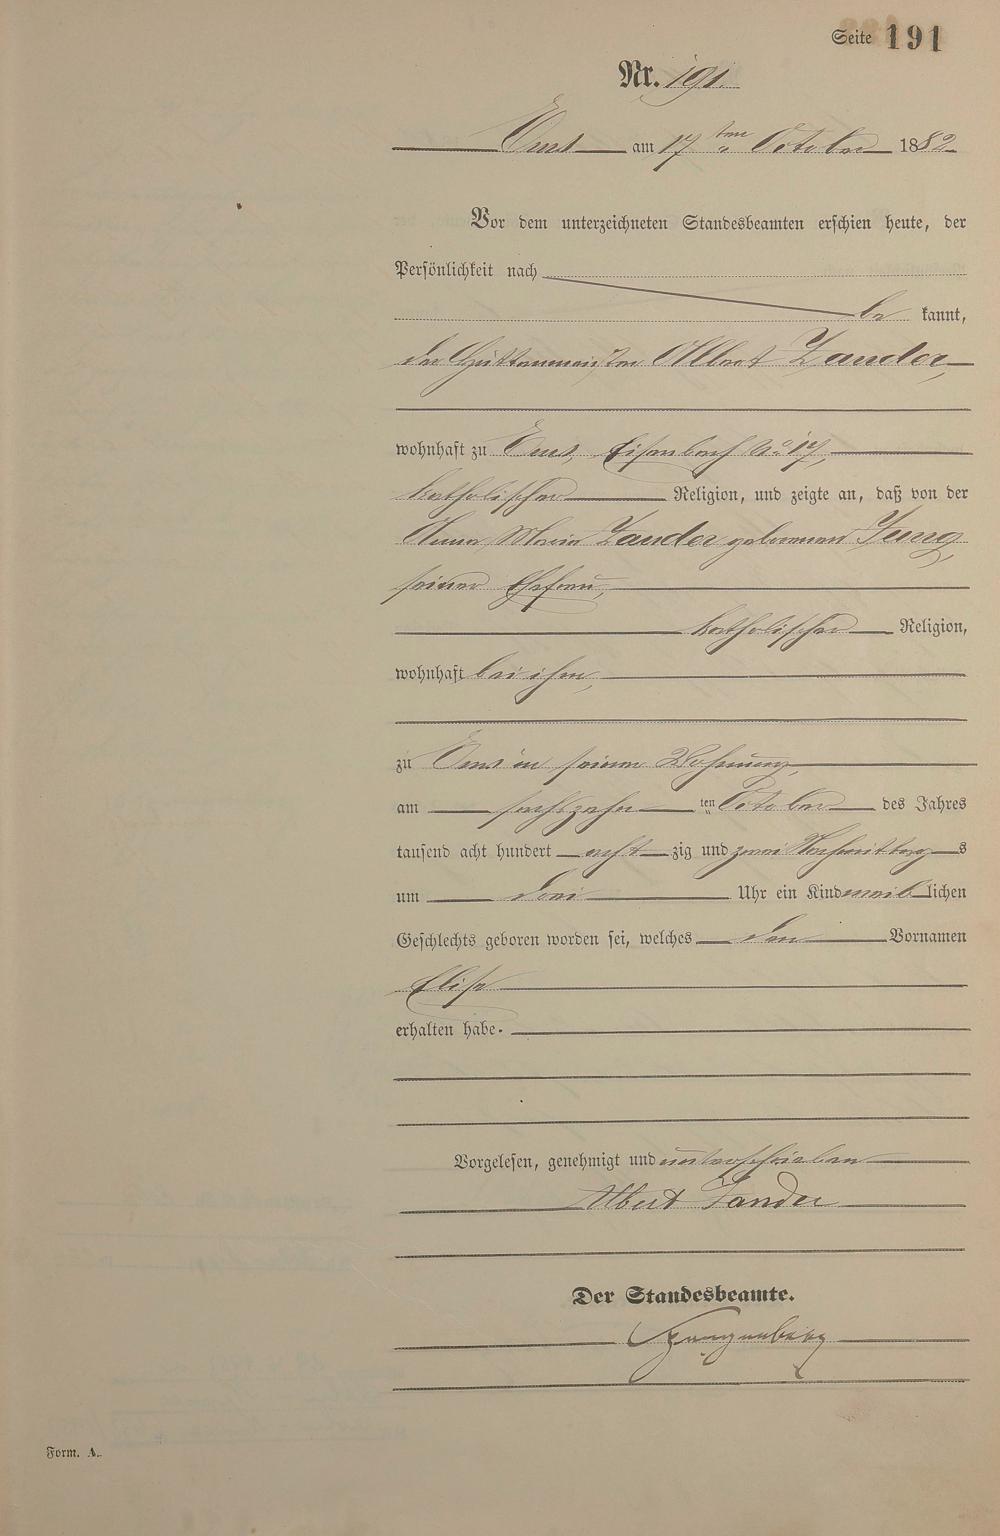 Seite 191
Nr. 191.
Ems am 17ten October 1882
Vor dem unterzeichneten Standesbeamten erschien heute, der
Persönlichkeit nach
be kannt,
der Hüttenmeister Albert Zander,
wohnhaft zu Ems, Eisenbach No 17,
katholischer Religion, und zeigte an, daß von der
Anna Maria Zander geborenen Jung,
seiner Ehefrau,
katholischer Religion,
wohnhaft bei ihm,
zu Ems in seiner Wohnung,
am sechszehn ten October des Jahres
tausend acht hundert acht zig und zwei Nachmittag s
um drei Uhr ein Kind weiblichen
Geschlechts geboren worden sei, welches den Vornamen
Elise
erhalten habe.
Vorgelesen, genehmigt und unterschrieben
Albert Zander
Der Standesbeamte.
Spangenberg
Form. A.